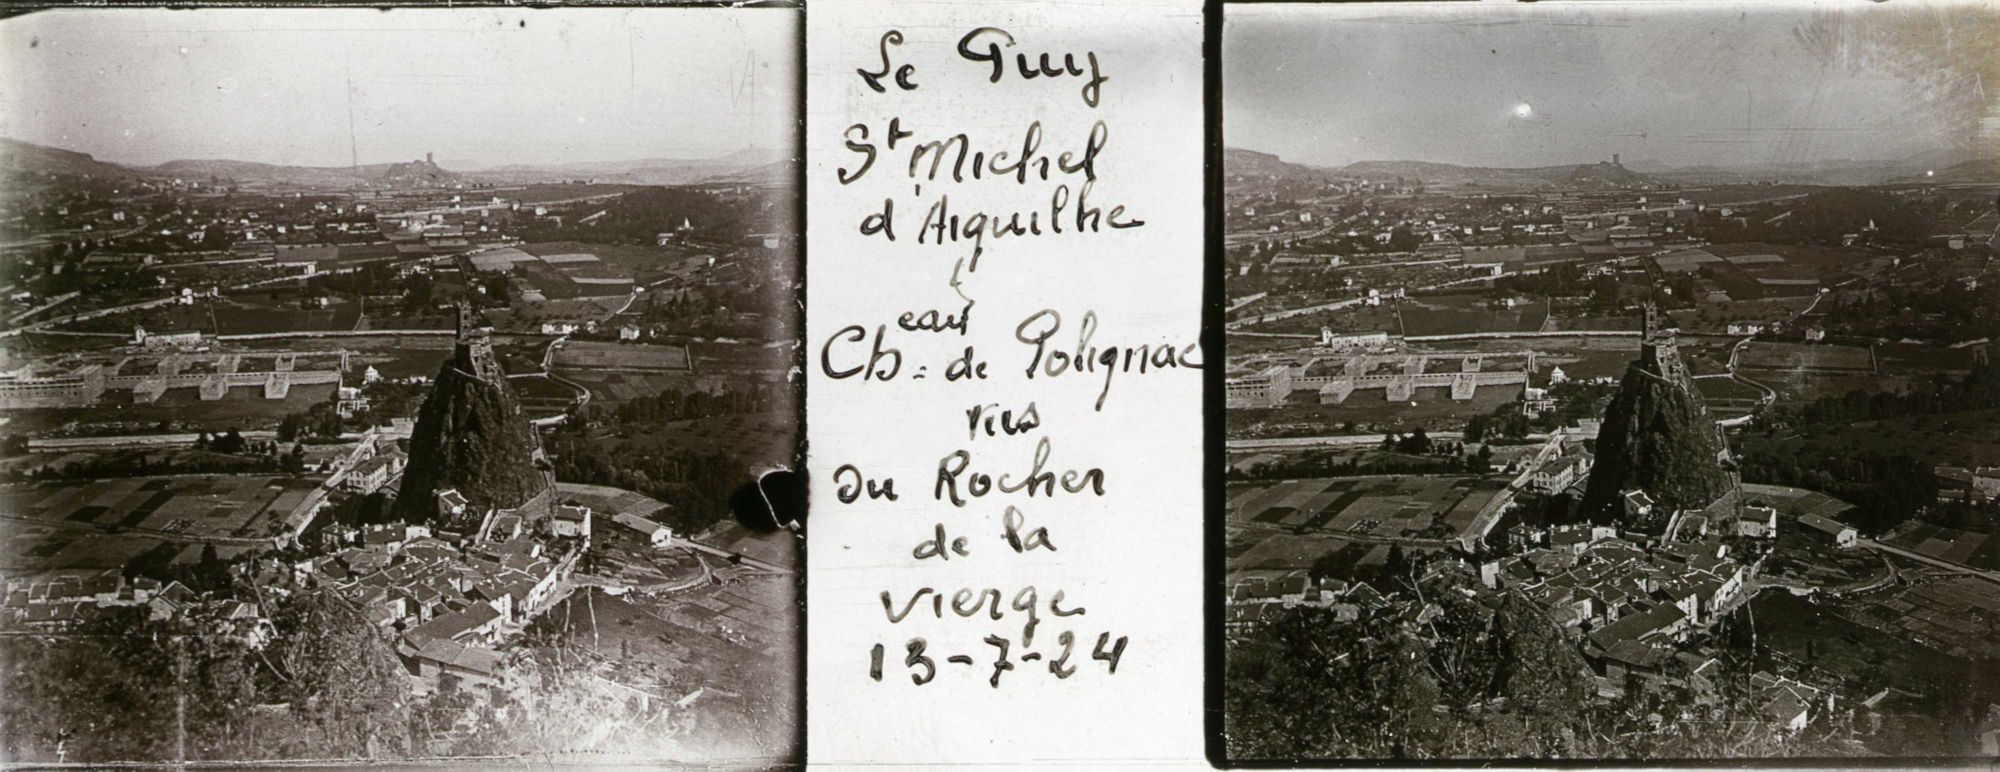 Le Puy
St Michel
d'Aiguilhe
et
eau
Ch: de Polignac
vus
du Rocher
de la
vierge
13-7-24